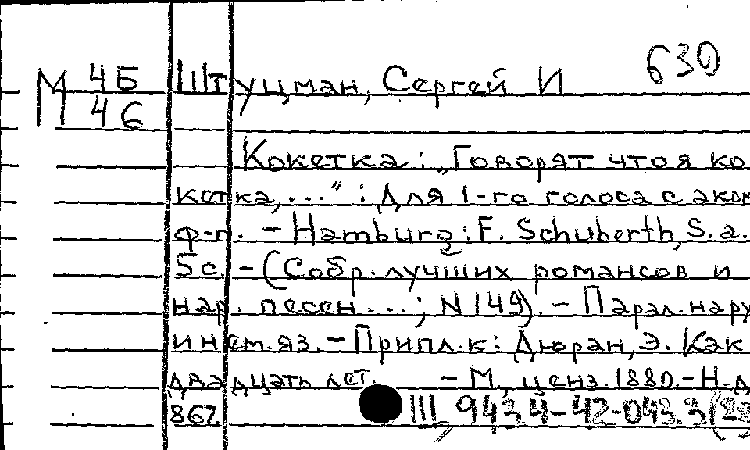 630
М 45 Штуцман, Сергей И
46
Кокетка: „Говорят что я ко
кетка,..." : Для 1-го голоса с акк
ф-п. - Hamburg: F. Schuberth, S.a.
5 с. - (Собр. лучших романсов и
нар. песен...; N 149). - Парал. нару
и нем. яз. - Припл. к: Дюран, Э. Как
двадцать лет. - М., ценз. 1880. - Н.д
867. III 943.4-42-043.3